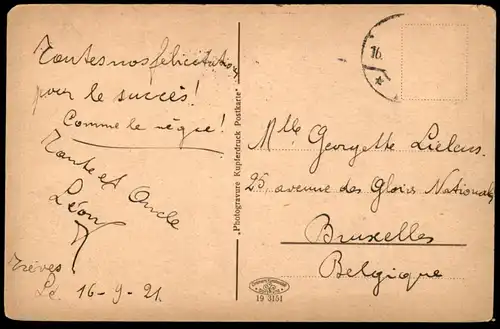 Toutes nos félicitations
pour le succès!
Comme le nègre!
Tante et Oncle
Léon
Trèves
Le 16-9-21.
"Photogravure Kupferdruck Postkarte"
16.
Mlle Georgette Lielens
25, avenue des Gloires Nationales
Bruxelles
Belgique
19 3151